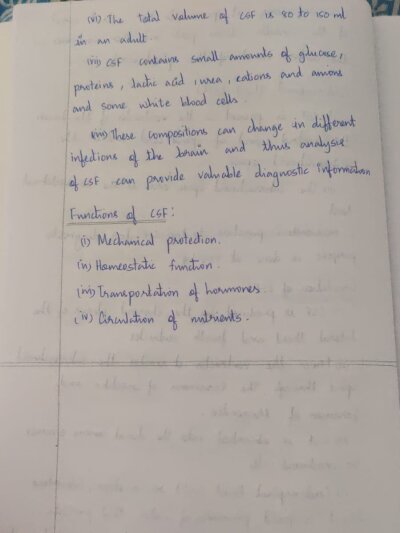 (vi) The total volume of CSF is 80 to 150 ml
in an adult.
(vii) CSF contains small amounts of glucose,
proteins, lactic acid, urea, cations and anions
and some white blood cells.
(viii) These compositions can change in different
infections of the brain and thus analysis
of CSF can provide valuable diagnostic information
Functions of CSF:
(i) Mechanical protection.
(ii) Homeostatic function.
(iii) Transportation of hormones
(iv) Circulation of nutrients.